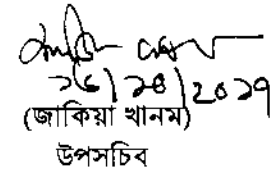 ২৫/১০/২০১৭
(জাকিয়া খানম)
উপসচিব